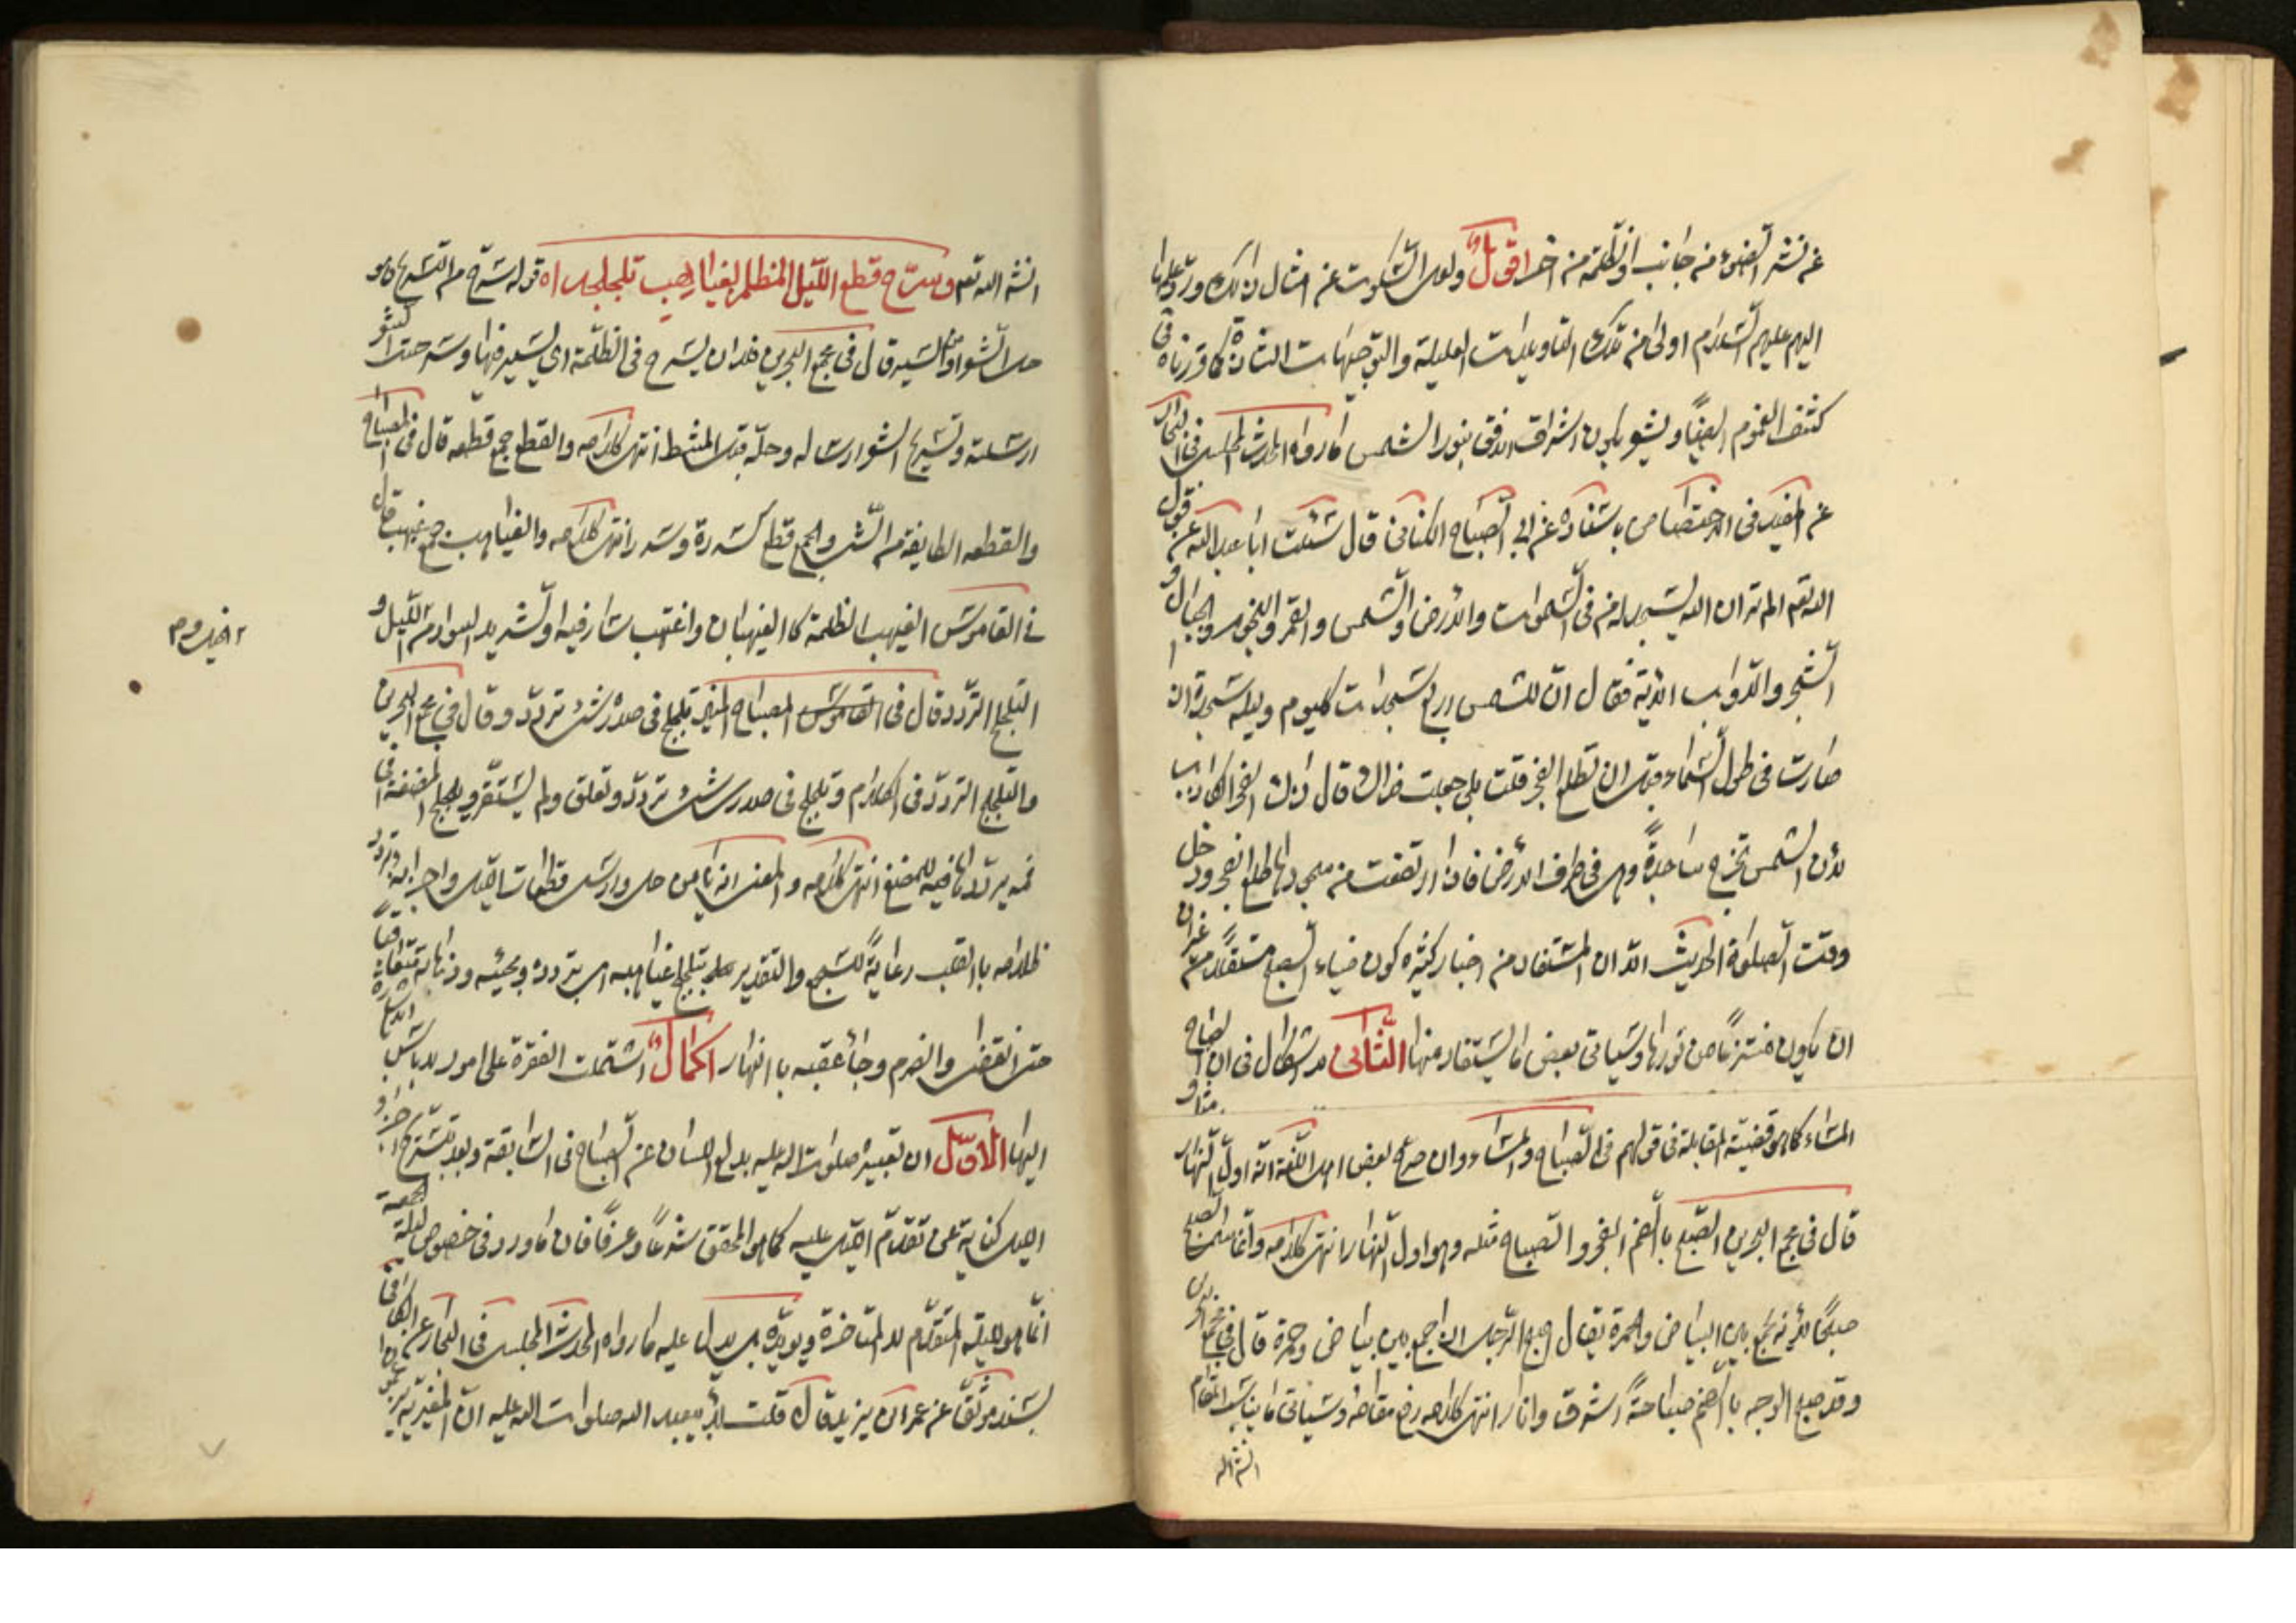 عن نشر الضوء من جانب او الظلمة من اخر اقول ولعل السكوت عن امثال ذلك ورد علمها
اليهم عليهم السلام اولى من تلك التاويلات العليلة والتوجيهات الشاذة كما قررناه في
كشف الغموم ايضًا ويشعر بكون اشراق الافق بنور الشمس ما رواه المحدث المجلسي في البحار
عن المفيد في الاختصاص باسناده عن ابي الصباح الكناني قال سئلت ابا عبد الله عن قول
الله تعم الم تر ان الله يسجد له من في السموات والارض والشمس والقمر والنجوم والجبال و
الشجر والدواب الاية فقال ان للشمس اربع سجدات كل يوم وليلة سجدة اذا
صارت في طول السماء قبل ان يطلع الفجر قلت بلى جعلت فداك قال ذاك الفجر الكاذب
لان الشمس تخرج ساجدة وهي في طرف الارض فاذا ارتفعت من سجودها طلع الفجر ودخل
وقت الصلوة الحديث الا ان المستفاد من اخبار كثيرة كون ضياء الصبح مستقلا من غير ان
ان يكون منتزعًا من نورها وسياتي بعض ما يستفاد منها الثاني لا اشكال في ان الصباح
المساء كما هو قضية المقابلة في قولهم في الصباح والمساء وان صرح بعض اهل اللغة انه اول النهار
قال في مجمع البحرين الصبح بالضم الفجر والصباح مثله وهو اول النهار انتهى كلامه وانما سمى الصبح
صبحًا لانه يجمع بين البياض والحمرة يقال صبح الرجل اذا جمع بين بياض وحمرة قال في مجمع البحرين
وقد صبح الوجه بالضم صباحةً اشرق وانار انتهى كلامه رفع مقامه وسياتي ما يناسب المقام
انشاء الله
انشاء الله تعم وسرّح قطع الليل المظلم بغياهب تلجلجه اه قوله سرح من التسريح وهو
حل الشعر او من السير قال في مجمع البحرين فلان يسرح في الظلمة اي يسير فيها وسرحت الشعر
ارسلته وتسريح الشعر ارساله وحله قبل المشط انتهى كلامه والقطع جمع قطعه قال في المصباح
والقطعه الطايفة من الشيء والجمع قطع كسدرة وسدر انتهى كلامه والغياهب جمع غيهب قال
في القاموس الغيهب الظلمة كالغيهبان واغتهب سار فيه او الشديد السواد من الليل و
التلجلج التردد قال في القاموس المصباح المنير تلجلج في صدره شيء تردد وقال في مجمع البحرين
والتلجلج التردد في الكلام وتلجلج في صدره شيء تردد وتعلق ولم يستقر ويلجلج المضغة في
فمه يرددها فيه للمضغ انتهى كلامه والمعنى انه يا من حل وارسل قطعات الليل واجزائه وتردد
ظلامه بالقلب رعاية للسجع والتقدير بتلجلج غياهبه اي بتردده ومجيئه وذهابه متعاقبًا
حتى انقضى وانصرم وجاء عقبه بالنهار اكمال اشتملت الفقرة على امور لا باس
اليها الاول ان تعبيره صلوات الله عليه بدلع لسان الصباح في السابقة وبعد تسريح
الليل كناية على تقدم الليل عليه كما هو المحقق شرعًا وعرفًا فان ما ورد في خصوص ليلة الجمعة
انما هو لليلة المتقدم لا المتاخرة ويؤيده بل يدل عليه ما رواه المحدث المجلسي في البحار عن الكافي
بسند موثق عن عمر بن يزيد قال قلت لابي عبد الله صلوات الله عليه ان المغيرية يزعمون